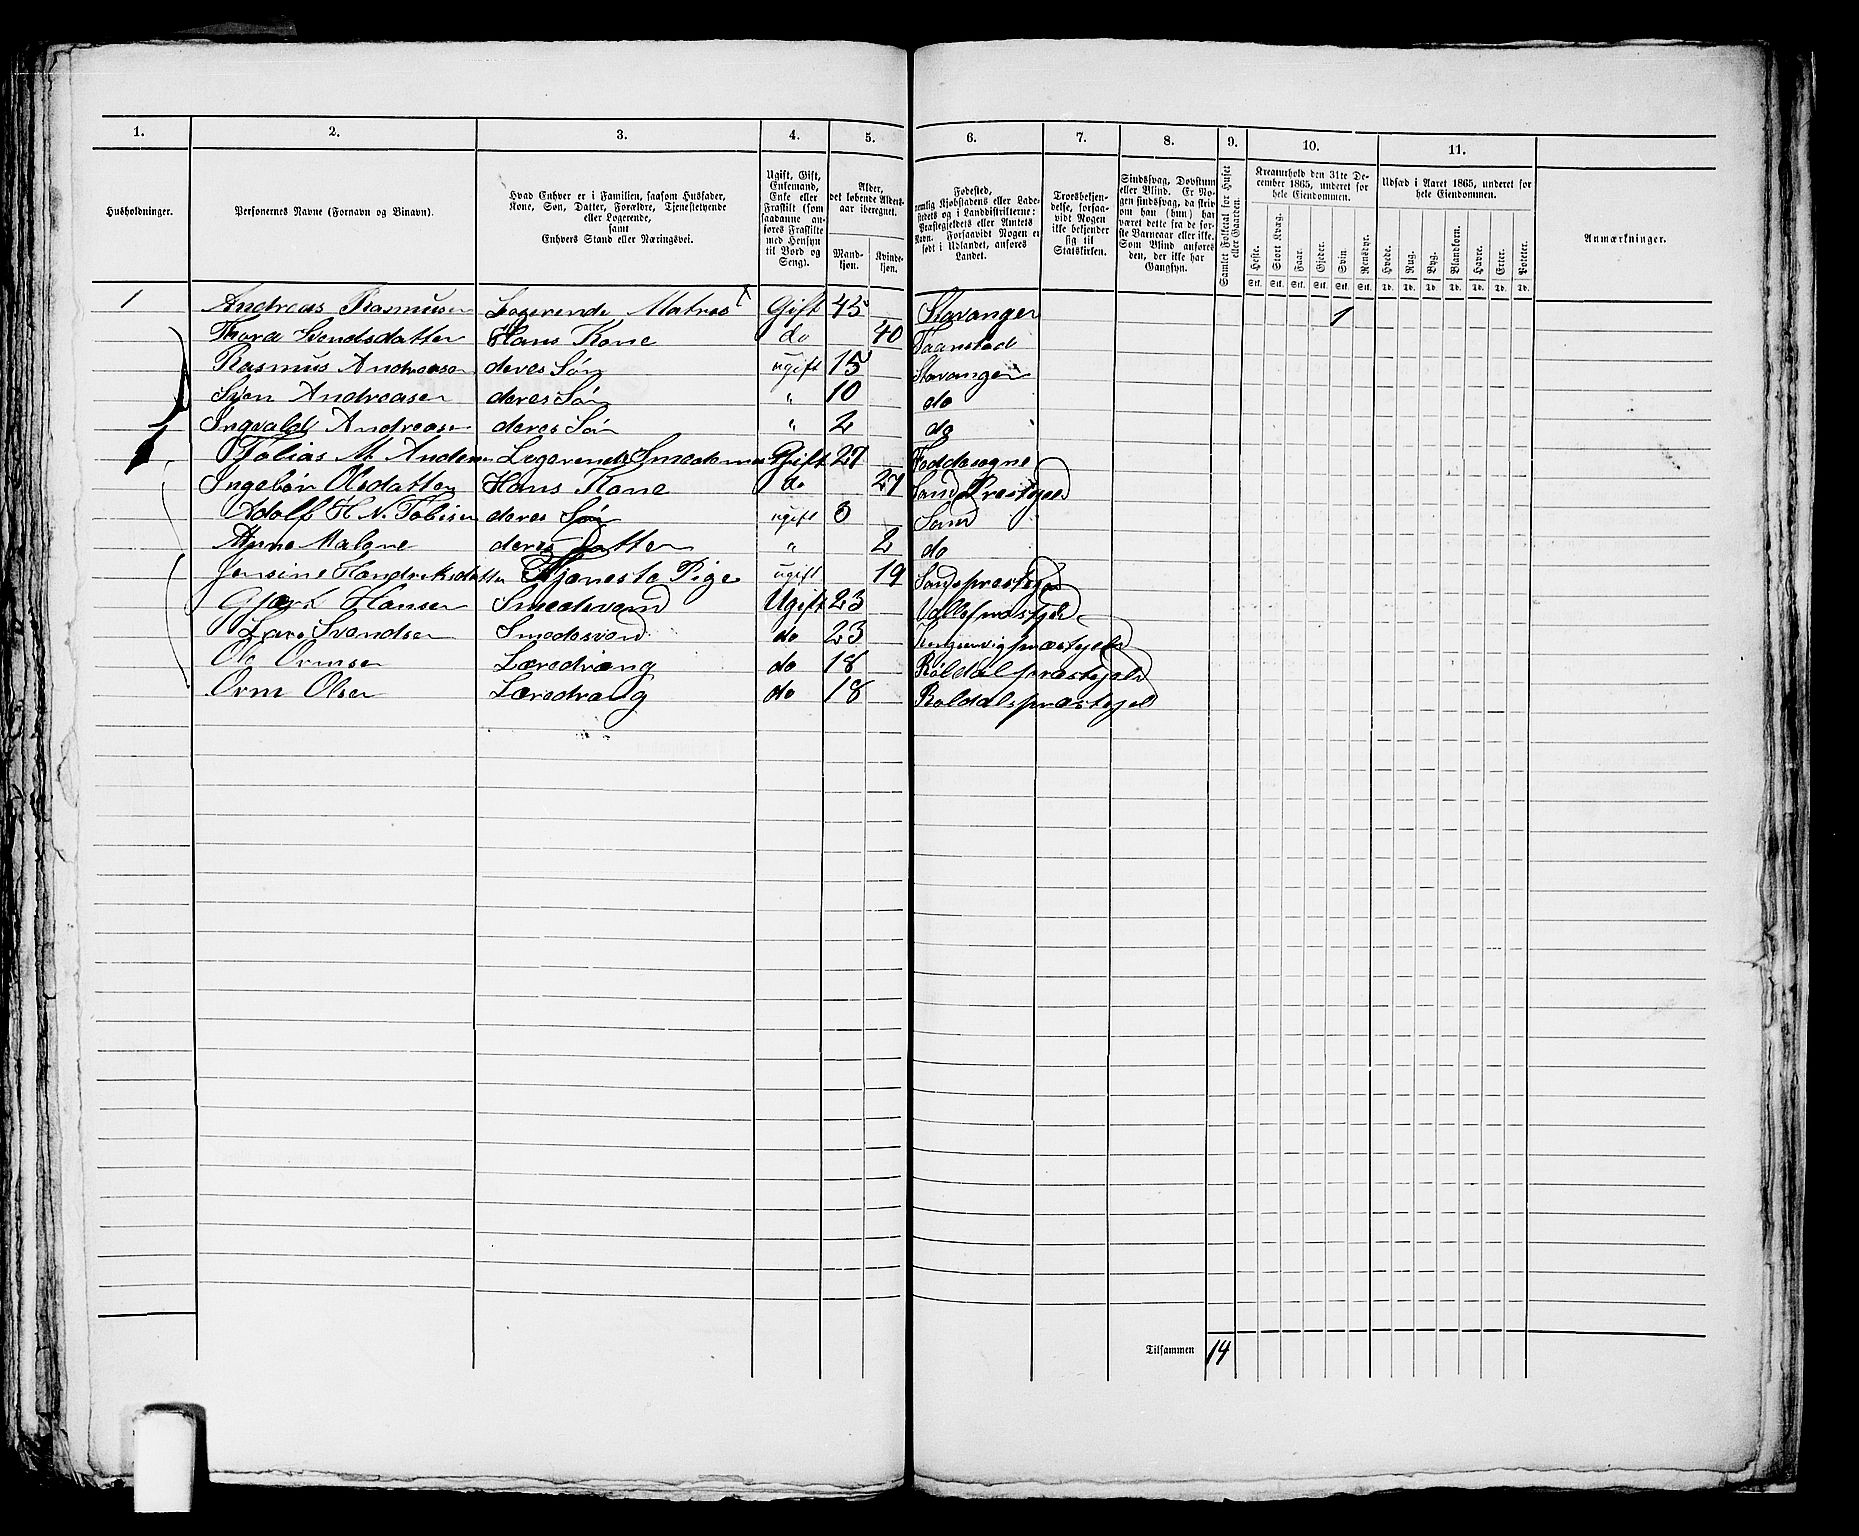 1. 2. 3. 4. 5. 6. 7. 8. 9. 10. 11.
Husholdninger.
Personernes Navne (Fornavn og Binavn).
Hvad Enhver er i Familien, saasom Husfader,
Kone, Søn, Datter, Forældre, Tjenestetyende
eller Logerende,
samt
Enhvers Stand eller Næringsvei.
Ugift, Gift,
Enkemand,
Enke eller
Fraskilt (som
saadanne an-
føres Fraskilte
med Hensyn
til Bord og
Seng).
Alder,
det løbende Alders-
aar iberegnet.
Mand-
kjøn.
Kvinde-
kjøn.
Fødested,
nemlig Kjøbstadens eller Lade-
stedets og i Landdistrikterne:
Præstegjeldets eller Amtets
Navn. Forsaavidt Nogen er
født i Udlandet, anføres
Landet.
Troesbekjen-
delse, forsaa-
vidt Nogen
ikke bekjender
sig til
Statskirken.
Sindssvag, Døvstum
eller Blind. Er No-
gen sindssvag, da skriv
om han (hun) har
været dette fra de for-
ste Barneaar eller ikke.
Som Blind anføres
den, der ikke har
Gangsyn.
Samlet Folketal for Huset
eller Gaarden.
Kreaturhold den 31te De-
cember 1865, underet for
hele Eiendommen.
Heste. Stort Kvæg. Faar. Gjeder. Svin. Rensdyr.
Stk. Stk. Stk. Stk. Stk. Stk.
Udsæd i Aaret 1865, underet for
hele Eiendommen.
Hvede. Rug. Byg. Blandkorn. Havre. Erter. Poteter.
Td. Td. Td. Td. Td. Td. Td.
Anmærkninger.
1 Andreas Rasmusen Logerende Matros Gift 45 Stavanger 1
Thora Svendsdatter Hans Kone do 40
Rasmus Andreasen deres Søn ugift 15 Stavanger
Sven Andreasen deres Søn " 10 do
Ingvald Andreasen deres Søn " 2 do
Tobias M. Logerende Gift 27
Olsdatter Hans Kone do 27 Sands Prestegjeld
Adolf H N. Tobisen deres Søn ugift 3 Sand
Anne Malene deres Datter " 2 do
Jensine Hendriksdatter Tjeneste Pige ugift 19 Sandspræstegjeld
Hansen Smedsvend Ugift 23
Lars Svendsen Smedesvend do 23
Ole Ormsen Læredræng do 18 Røldalspræstegjeld
Orm Olsen Læredræng do 18 Røldalspræstegjeld
Tilsammen 14